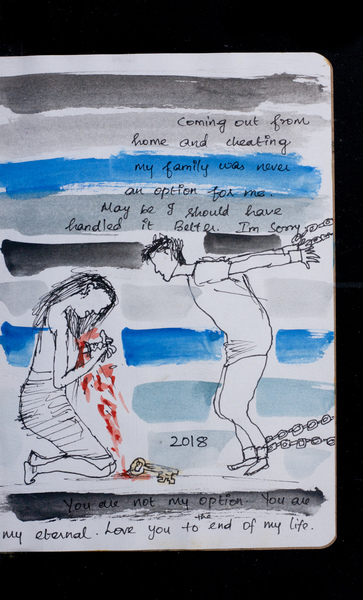 Coming out from
home and cheating
my family was never
an option for me.
May be I should have
handled it Better. I'm sorry
2018
You are not my option. You are
my eternal. Love you to the end of my life.